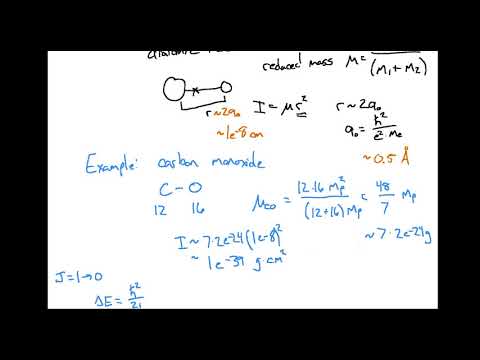 reduced mass μ = (M₁ + M₂)
r ~ 2a₀
~ 1e⁻⁸ cm
I = μr²
r ~ 2a₀
a₀ = ħ² / e² · mₑ
~ 0.5 Å
Example: carbon monoxide
C – O
12 16
μ_CO = 12·16 Mp² / (12+16) Mp = 48 / 7 Mp
~ 7·2e-24g
I ~ 7·2e-24 (1e-8)²
~ 1e-39 g·cm²
J=1→0
ΔE = ħ² / 2I